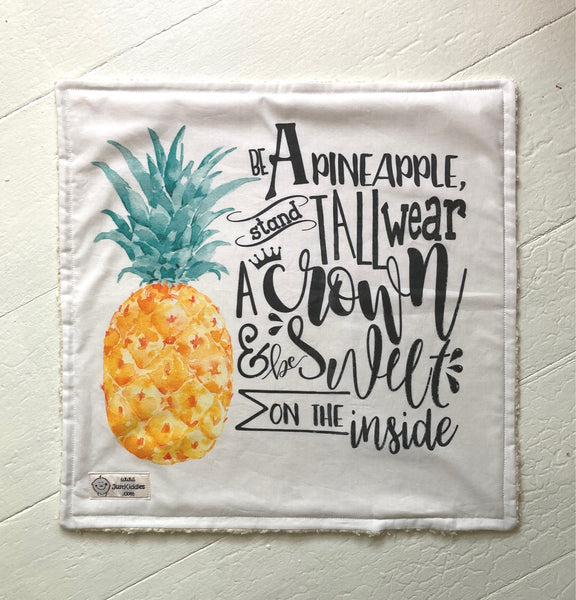 BE A PINEAPPLE,
stand TALL wear
A crown
& be Sweet
ON THE inside
www.
JustKiddies
.com